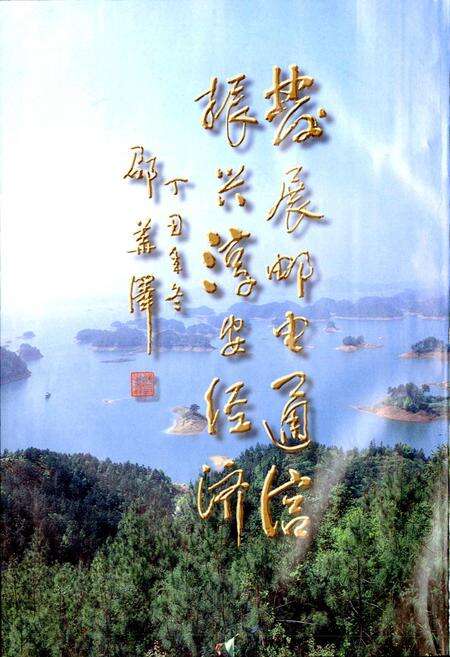 發展邮电通信
振兴淳安经济
丁丑年冬
邵华泽